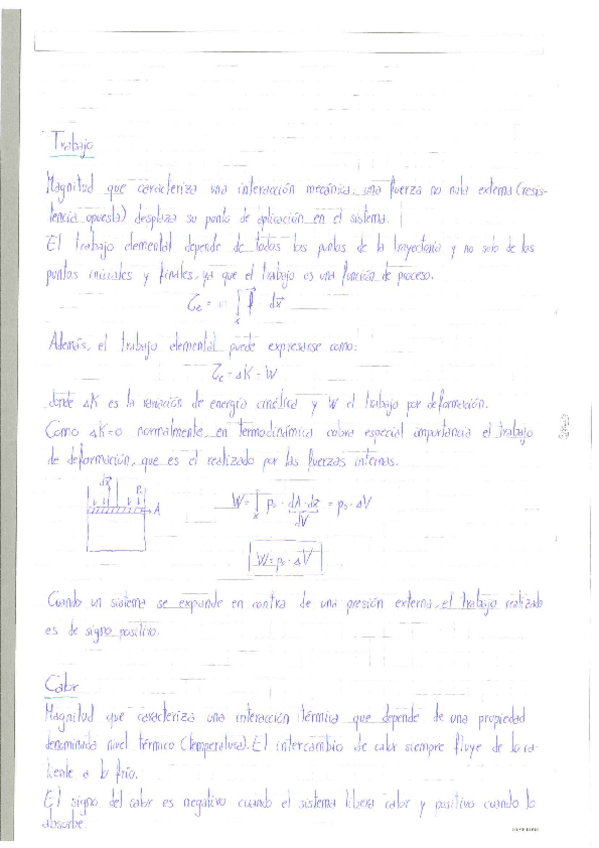 Trabajo
Magnitud que caracteriza una interacción mecánica, una fuerza no nula externa (resis-
tencia opuesta) desplaza su punto de aplicación en el sistema.
El trabajo elemental depende de todos los puntos de la trayectoria y no solo de los
puntos iniciales y finales, ya que el trabajo es una función de proceso.
Además, el trabajo elemental puede expresarse como:
donde ΔK es la variación de energía cinética y W el trabajo por deformación.
Como ΔK=0 normalmente, en termodinámica cobra especial importancia el trabajo
de deformación, que es el realizado por las fuerzas internas.
dx P₀
A
W = ∫ₓ p₀ · dA · dx = p₀ · ΔV
dV
W = p₀ · ΔV
Cuando un sistema se expande en contra de una presión externa, el trabajo realizado
es de signo positivo.
Calor
Magnitud que caracteriza una interacción térmica que depende de una propiedad
denominada nivel térmico (temperatura). El intercambio de calor siempre fluye de lo ca-
liente a lo frío.
El signo del calor es negativo cuando el sistema libera calor y positivo cuando lo
absorbe.